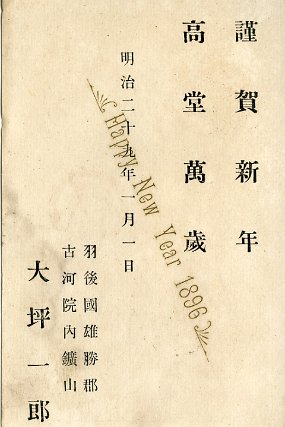 謹賀新年
高堂萬歲
明治二十九年一月一日
Happy New Year 1896
羽後國雄勝郡
古河院內鑛山
大坪一郎